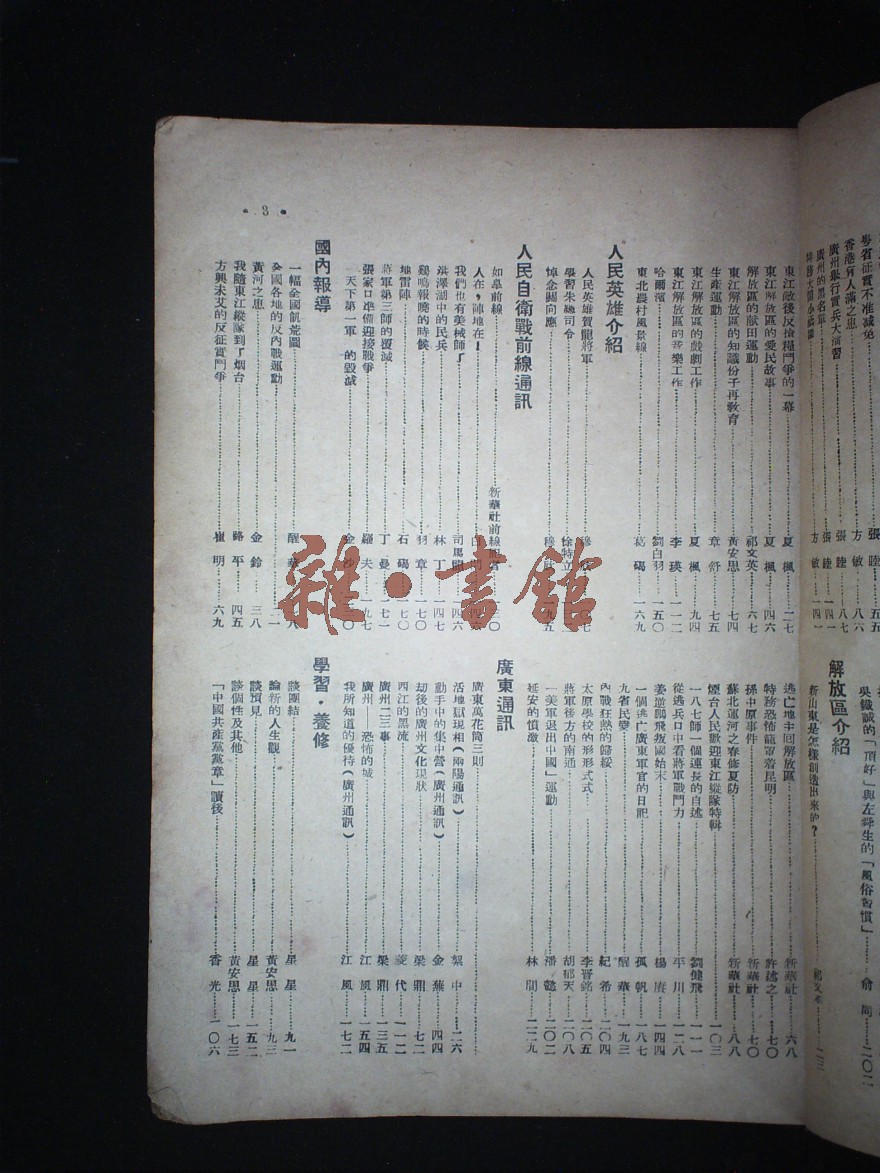 粵省征實不准減免……張陸……五五
香港有人滿之患……方敏……八六
廣州銀行實兵大演習……張陸……八七
廣州的黑名單……張陸……一四一
方敏……一四一
吳鐵誠的「頂好」與左舜生的「風俗習慣」……俞周……二〇二
解放區介紹
新山東是怎樣創造出來的?
• 3 •
東江敵後反搶糧鬥爭的一幕……夏楓……二七
東江解放區的愛民故事……夏楓……四六
解放區的献田運動……祁文英……六七
東江解放區的知識份子再敎育……黃安思……七四
生產運動……章舒……七五
東江解放區的戲劇工作……夏楓……九四
東江解放區的音樂工作……李瑛……一一二
哈爾濱……劉白羽……一五〇
東北農村風景線……葛碭……一六九
人民英雄介紹
人民英雄賀龍將軍
學習朱總司令……徐特立
悼念關向應……穆欣
人民自衛戰前線通訊
如皋前線……新華社前線記者
人在,陣地在!
我們也有美械師了……司馬
洪澤湖中的民兵……林丁……一四七
鷄鳴報曉的時候……羽章……一七〇
地雷陣……石碭……一七〇
蔣軍第三師的覆滅……丁曼……一七一
張家口準備迎接戰爭……羅夫……一九七
「天下第一軍」的毀滅……金沙
國內報導
一幅全國飢荒圖……醒華
全國各地的反內戰運動
黃河之患……金鈴……三八
我隨東江縱隊到了烟台……路平……四五
方興未艾的反征實鬥爭……崔明……六九
逃亡地主回解放區……新華社……六八
特務恐怖籠罩着昆明……許逖之……七〇
孫中原事件……新華社……七〇
蘇北運河之春修夏防……新華社……八八
煙台人民歡迎東江縱隊特輯……一〇三
一八七師一個連長的自述……劉健飛……一一一
從逃兵口中看蔣軍戰鬥力……平川……一二八
姜逆鵬飛叛國始末……楊賡……一四四
一個逃亡廣東軍官的日記……孤帆……一八七
九省民變……醒華……一九三
內戰狂熱的歸綏……紀希……二〇四
太原學校的形形式式……李晉銘……二〇五
蔣軍後方的南通……胡郁天……二〇八
「美軍退出中國」運動……潘懿……二〇二
延安的憤激……林間……二二九
廣東通訊
廣東萬花筒三則……絮中……二六
活地獄現相(兩陽通訊)……金蕪……四四
動手中的集中營(廣州通訊)……金蕪……四四
刼後的廣州文化現狀……梁鼎……七二
西江的黑流……菱代……一一二
廣州二三事……梁鼎……一三五
廣州——恐怖的城……江風……一五四
我所知道的優待(廣州通訊)……江風……一七二
學習・養修
談團結……星星……九一
論新的人生觀……黃安思……九三
談預見……星星……一五二
談個性及其他……黃安思……一七三
「中國共產黨黨章」讀後……香光……一〇六
雜・書館